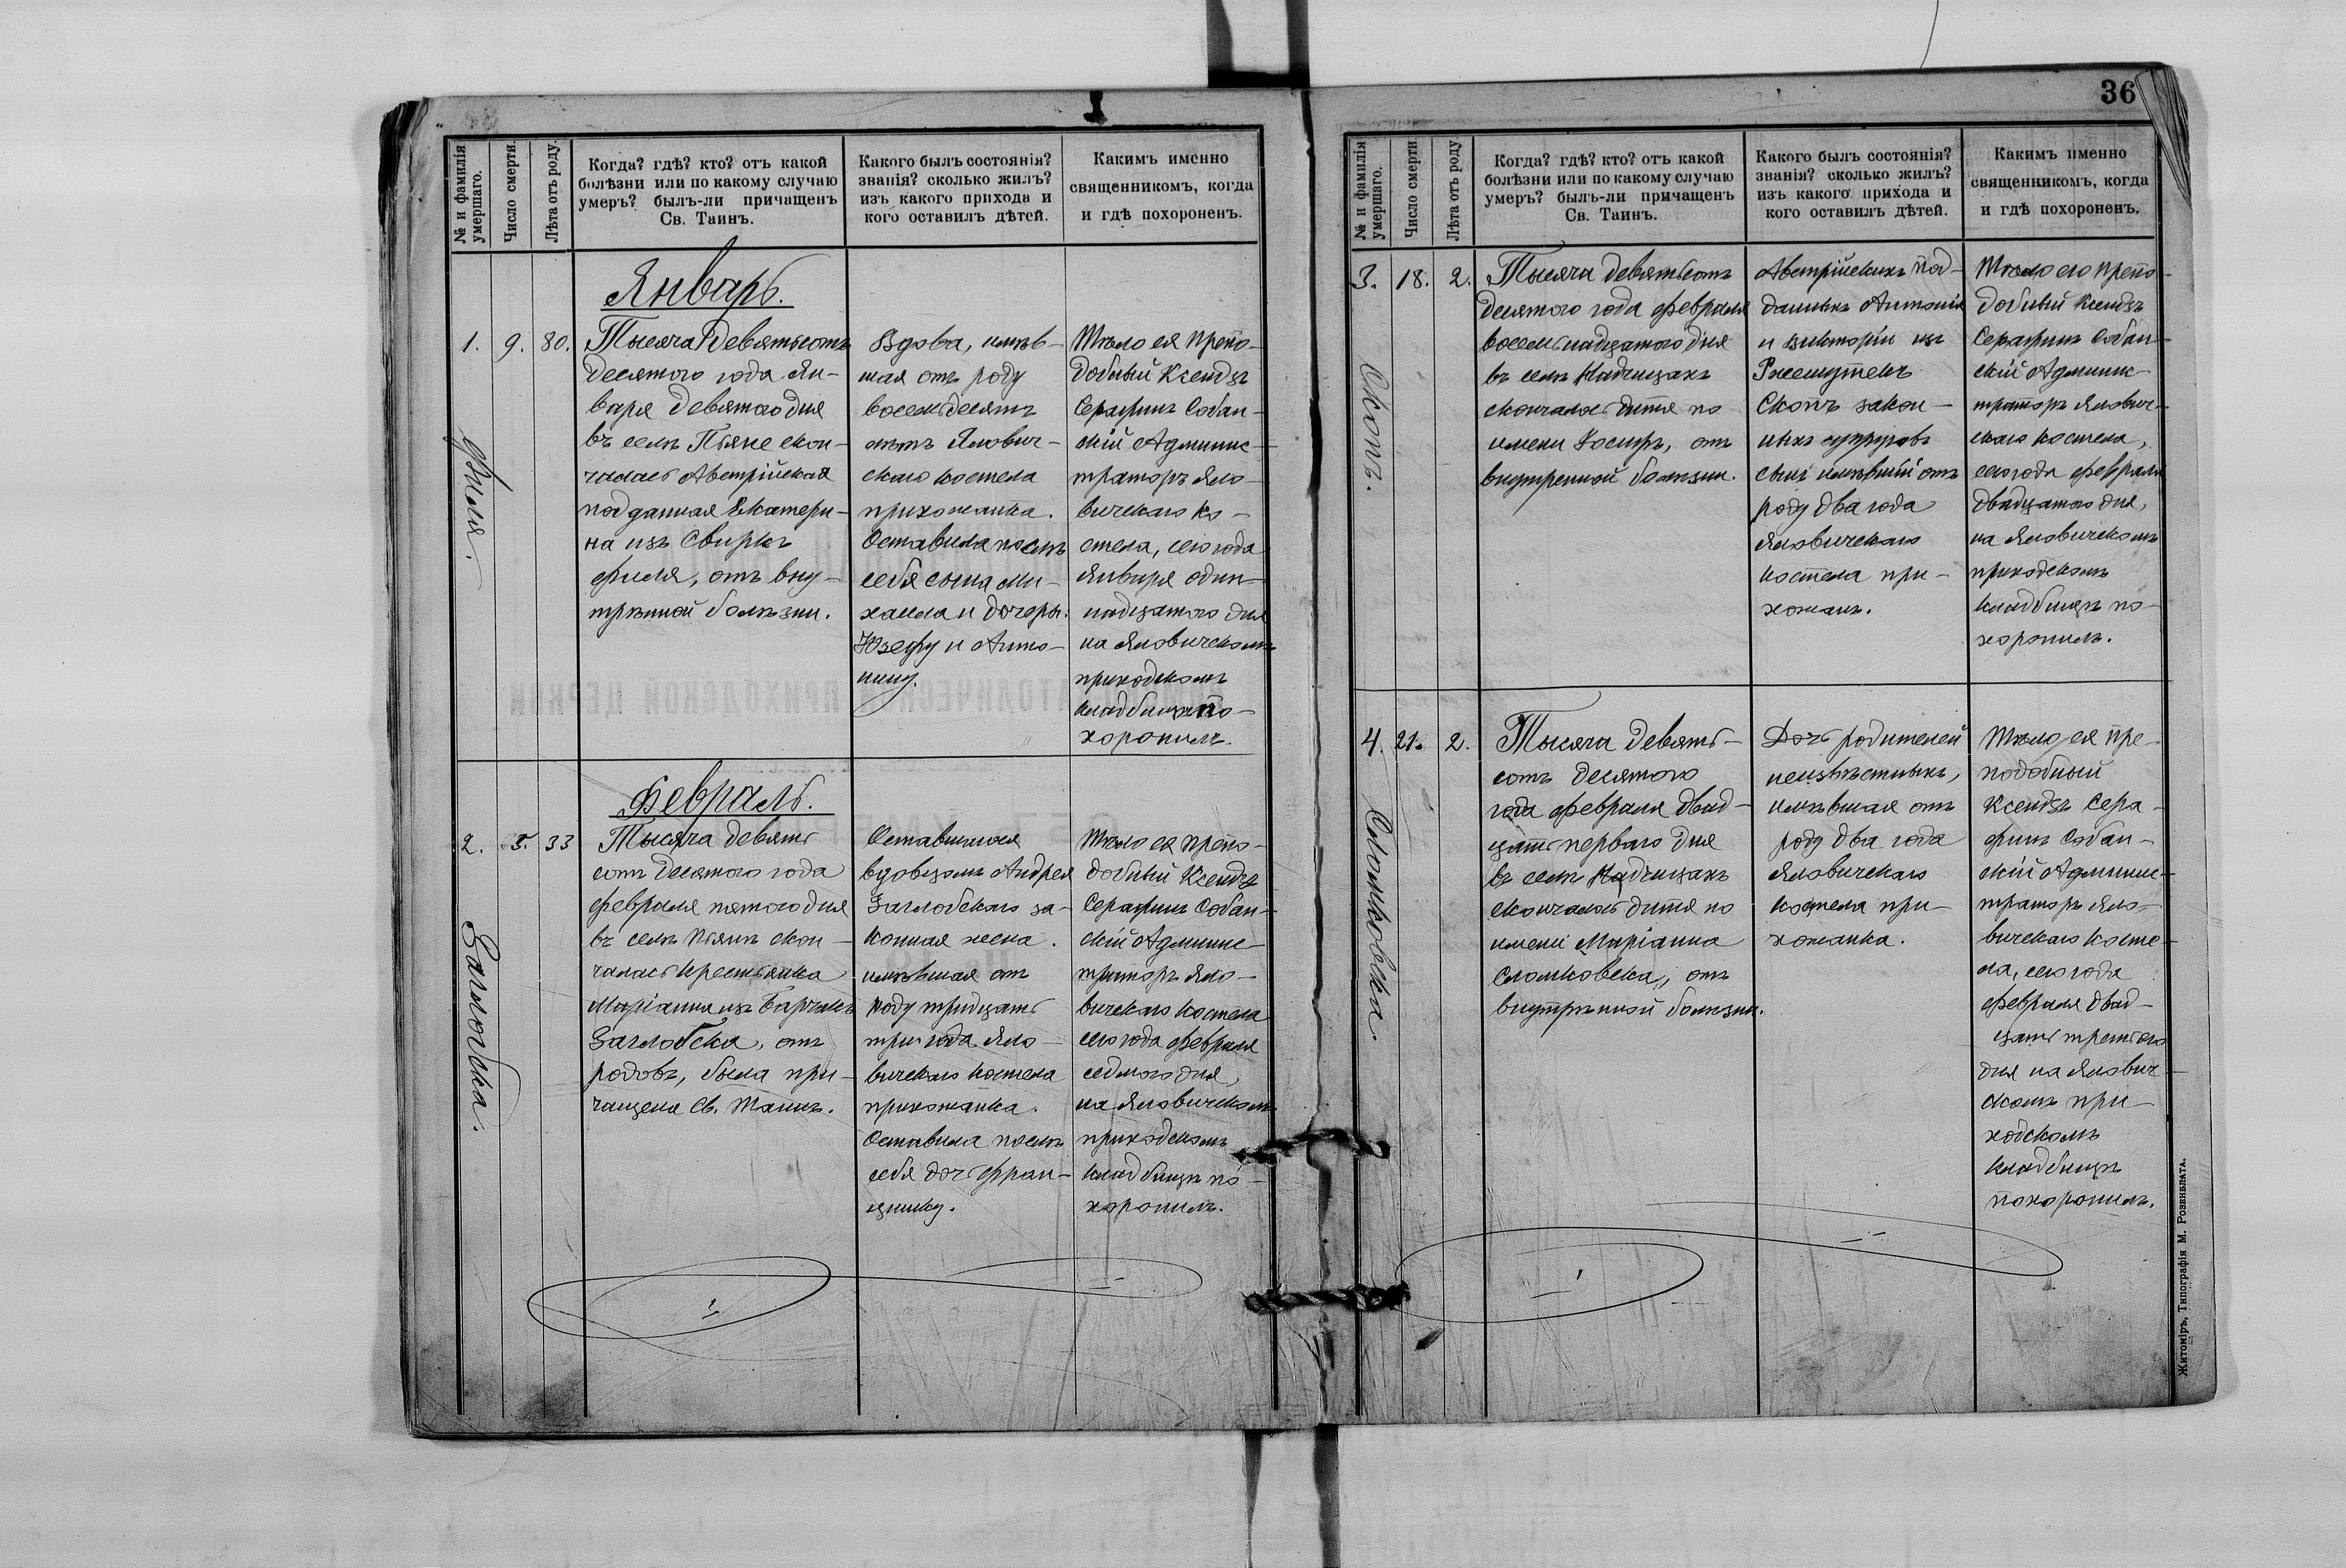 36
№ и фамилія умершаго.
Число смерти.
Лѣта отъ роду.
Когда? гдѣ? кто? отъ какой
болѣзни или по какому случаю
умеръ? былъ-ли причащенъ
Св. Таинъ.
Какого былъ состоянія?
званія? сколько жилъ?
изъ какого прихода и
кого оставилъ дѣтей.
Какимъ именно
священникомъ, когда
и гдѣ похороненъ.
Январь.
1.
Филя.
9.
80.
Тысяча девятьсотъ
десятого года Ян-
варя девятого дня
въ селѣ Пяне скон-
чалась Австрійская
подданная Екатери-
на изъ Свиркъ
Филя, отъ вну-
трѣнной болѣзни.
Вдова, имѣв-
шая отъ роду
восемьдесятъ
лѣтъ Ялович-
скаго костела
прихожанка.
Оставила послѣ
себя сына Ми-
хаила и дочеры:
Юзефу и Анто-
нину.
Тѣло ея Препо-
добный Ксендзъ
Серафинъ Собан-
скій Админис-
траторъ Яло-
вичскаго Ко-
стела, сего года
Января одинн-
надцатого дня
на Яловичскомъ
приходскомъ
кладбищѣ по-
хоронилъ.
Февраль.
2.
Заглобска.
5.
33
Тысяча девять
сотъ десятого года
февраля пятого дня
въ селѣ Пянѣ скон-
чалась крестьянка
Маріанна изъ
Заглобска, отъ
родовъ, была при-
чащена Св. Таинъ.
Оставшагося
вдовцомъ Андрея
Заглобскаго за-
конная жена.
имѣвшая отъ
роду тридцать
три года Яло-
вичскаго костела
прихожанка.
Оставила послѣ
себя доч Фран-
цишку.
Тѣло ея Препо-
добный Ксендзъ
Серафинъ Собан-
скій Админис-
траторъ Яло-
вичскаго костела
сего года февраля
седмого дня,
на Яловичскомъ
приходскомъ
кладбищѣ по-
хоронилъ.
№ и фамилія умершаго.
Число смерти
Лѣта отъ роду
Когда? гдѣ? кто? отъ какой
болѣзни или по какому случаю
умеръ? былъ-ли причащенъ
Св. Таинъ.
Какого былъ состоянія?
званія? сколько жилъ?
изъ какого прихода и
кого оставилъ дѣтей.
Какимъ именно
священникомъ, когда
и гдѣ похороненъ.
3.
Скопъ.
18.
2.
Тысяча девятьсотъ
десятого года февраля
восемьнадцатого дня
въ селѣ Надчицахъ
скончалось дитя по
имени, отъ
внутренной болѣзни.
Австрійскихъ под-
данныхъ Антонія
и Викторіи изъ
Скопъ закон-
ныхъ супруговъ
сынъ имѣвшій отъ
роду два года
Яловичскаго
костела при-
хожан.
Тѣло его Препо-
добный Ксендзъ
Серафинъ Собан-
скій Админис-
траторъ Ялович-
скаго костела,
сего года февраля
двадцатого дня,
на Яловичскомъ
приходскомъ
кладбищѣ по-
хоронилъ.
4.
Сломковска.
21.
2.
Тысяча девять-
сотъ десятого
года февраля двад-
цать первого дня
въ селѣ Надчицахъ
скончалось дитя по
имени Маріанна
Сломковска, отъ
внутрѣнной болѣзни.
Дочь родителей
неизвѣстныхъ,
имѣвшая отъ
роду два года
Яловичскаго
костела при-
хожанка.
Тѣло ея Пре-
подобный
Ксендзъ Сера-
финъ Собан-
скій Админис-
траторъ Яло-
вичскаго косте-
ла, сего года
февраля двад-
цать третьего
дня на Ялович-
скомъ при-
ходскомъ
кладбищѣ
похоронилъ.
Житоміръ, Типографія М. Розенблата.